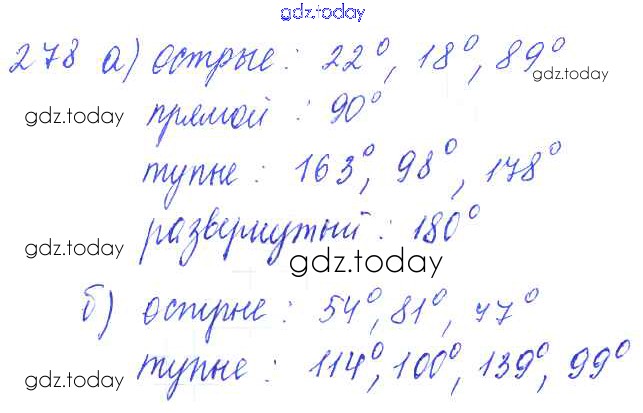 gdz.today
278 а) острые : 22°, 18°, 89°
gdz.today
gdz.today прямой : 90°
тупые : 163°, 98°, 178°
gdz.today развернутый : 180°
gdz.today
б) острые : 54°, 81°, 77°
gdz.today тупые : 114°, 100°, 139°, 99°
gdz.today